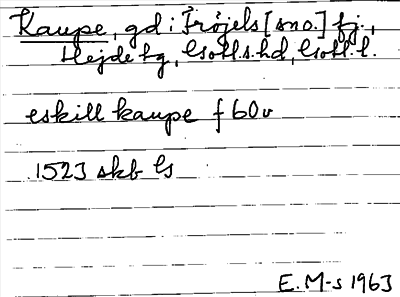 Kaupe, gd i Fröjels [sno.] fj.,
Hejde tg, Gotl. s. hd, Gotl. l.
eskill kaupe f 60v
1523 skb G
E. M-s 1963